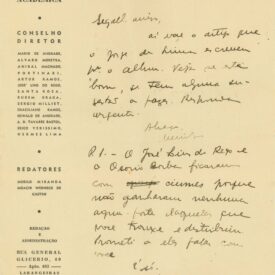 ACADEMICA
CONSELHO
DIRETOR
MARIO DE ANDRADE,
ALVARO MOREYRA,
ANIBAL MACHADO,
PORTINARI,
ARTUR RAMOS,
JOSÉ LINS DO REGO,
SANTA ROSA,
RUBEM BRAGA,
SERGIO MILLIET,
GRACILIANO RAMOS,
OSWALD DE ANDRADE,
A. D. TAVARES BASTOS,
ERICO VERISSIMO,
HERMES LIMA
REDATORES
MURILO MIRANDA
MOACIR WERNECK DE
CASTRO
REDAÇÃO
e
ADMINISTRAÇÃO
RUA GENERAL
GLICERIO, 40
Apto. 402
LARANJEIRAS
Segall amigo,
ai vae o artigo que
o Jorge de Lima escreveu
pro o album. Veja se está
bom, se tem alguma su-
gestão a fazer. Responda
urgente.
Abraço,
Murilo
P.S. — O José Lins do Rego e
o Osorio Borba ficaram
com ciumes porque
não ganharam nenhuma
agua forte daquelas que
você trouxe e distribuiu
Prometi a eles falar com
você